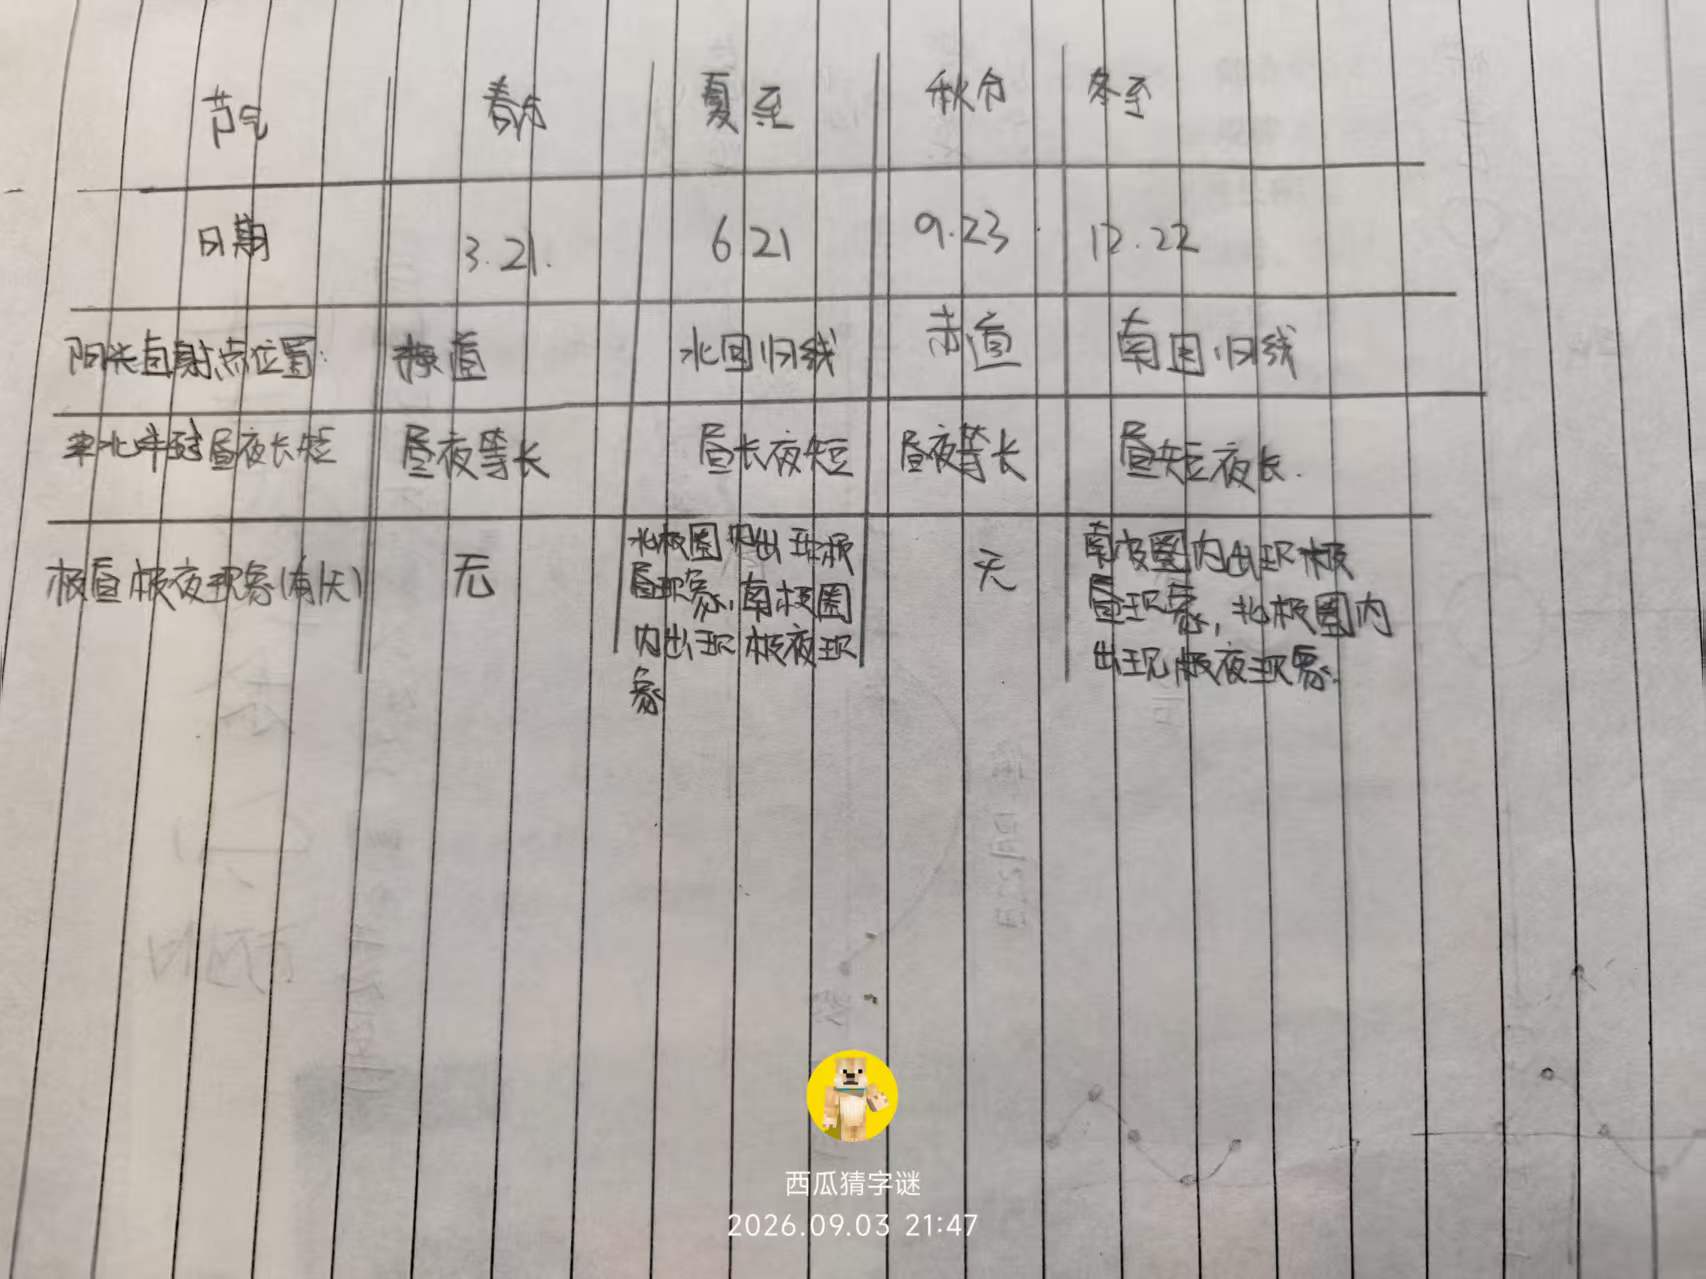 节气 春分 夏至 秋分 冬至
日期 3.21. 6.21 9.23 12.22
阳光直射点位置: 道 北回归线 赤道 南回归线
北半球昼夜长短 昼夜等长 昼长夜短 昼夜等长 昼短夜长.
极昼极夜现象(有/无) 无 北极圈内出现极昼现象,南极圈内出现极夜现象 无 南极圈内出现极昼现象,北极圈内出现极夜现象.
西瓜猜字谜
2026.09.03 21:47